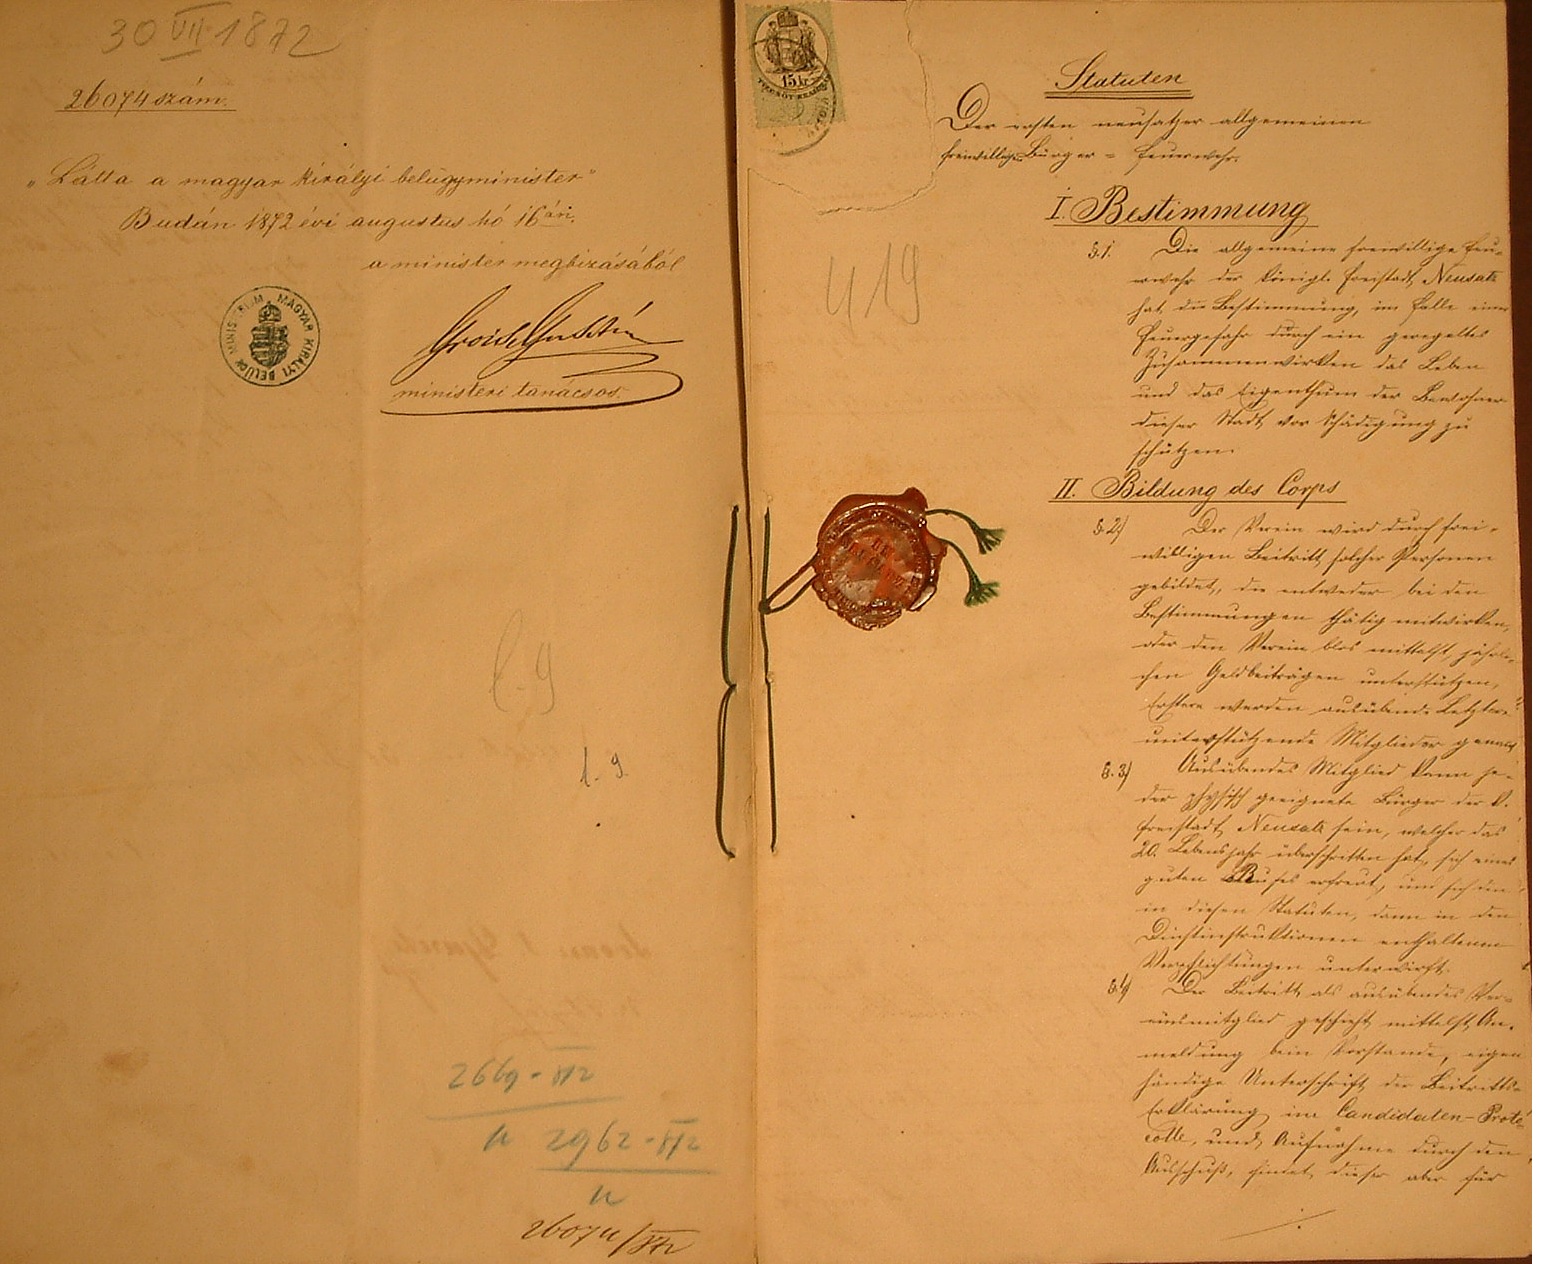 30 VII 1872
26074 szám.
„Látta a magyar királyi belügyminister"
Budán 1872 évi augustus hó 16án.
a minister megbizásából
MAGYAR KIRÁLYI BELÜGY MINISTERIUM
ministeri tanácsos.
l. 9
l. 9.
2962
26074/872
15 kr
419
Statuten
Der ersten neusatzer allgemeinen
freiwilligen Bürger = Feuerwehr.
I. Bestimmung
§.1. Die allgemeine freiwillige Feu-
erwehr der königl. Freistadt Neusatz
hat die Bestimmung, im Falle einer
Feuergefahr durch ein geregeltes
Zusammenwirken das Leben
und das Eigenthum der Bewohner
dieser Stadt vor Schädigung zu
schützen.
II. Bildung des Corps
§.2) Der Verein wird durch frei-
willigen Beitritt solcher Personen
gebildet, die entweder bei den
Bestimmungen thätig mitwirken,
oder den Verein blos mittelst jährli-
chen Geldbeiträgen unterstützen,
Erstere werden ausübende Letztere
unterstützende Mitglieder genant
§.3) Ausübendes Mitglied kann je-
der physisch geeignete Bürger der k.
Freistadt Neusatz sein, welcher das
20. Lebensjahr überschritten hat, sich eines
guten Rufes erfreut, und sich den
in diesen Statuten, dann in den
Dinstinstruktionen enthaltenen
Verpflichtungen unterwirft.
§.4) Der Beitritt als ausübendes Ver-
einsmitglied geschieht mittelst An-
meldung beim Vorstande, eigen
händige Unterschrift der Beitritts-
Erklärung im Candidaten-Proto-
colle, und Aufnahme durch den
Ausschuß, findet dieser aber für